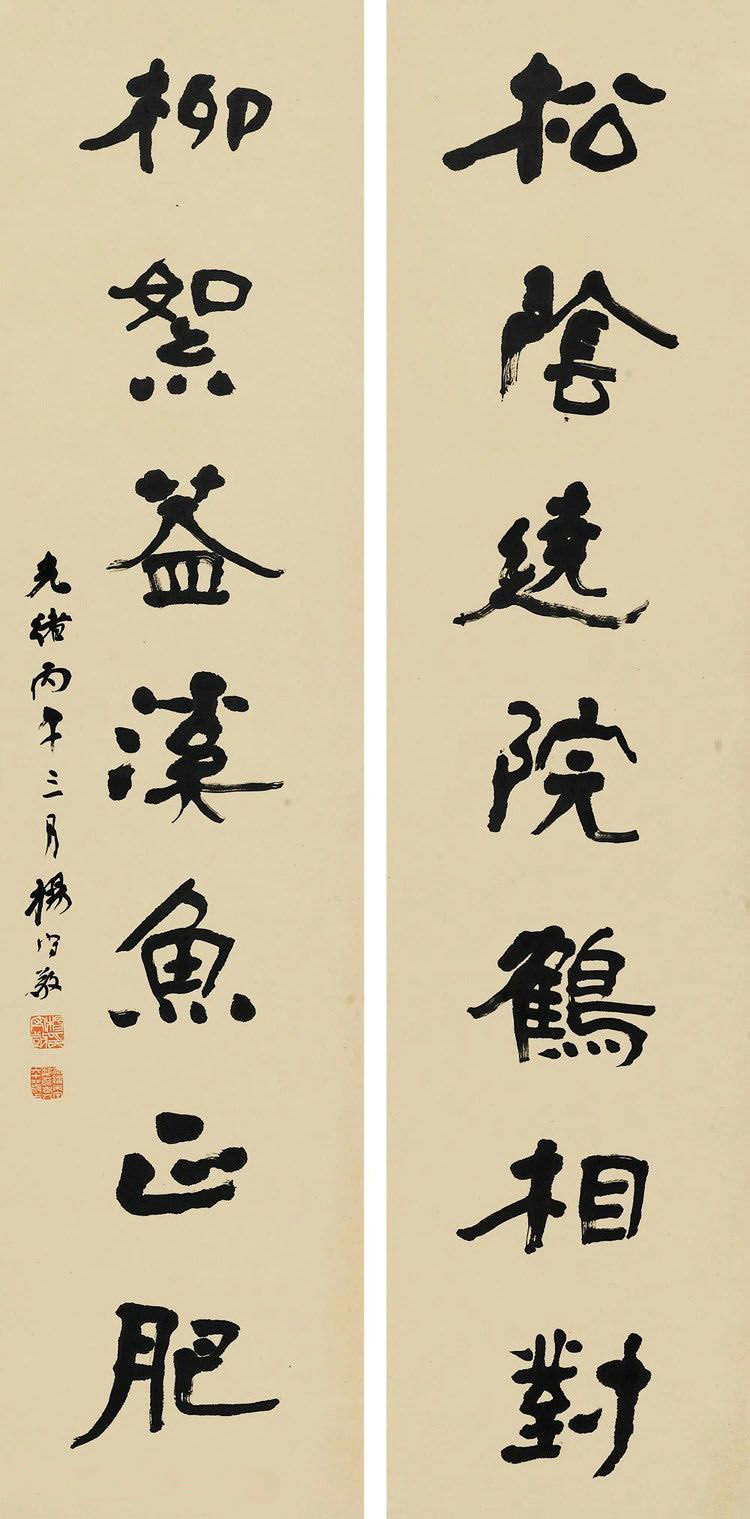 松陰遶院鶴相對
柳絮葢溪魚正肥
光緒丙午三月楊守敬